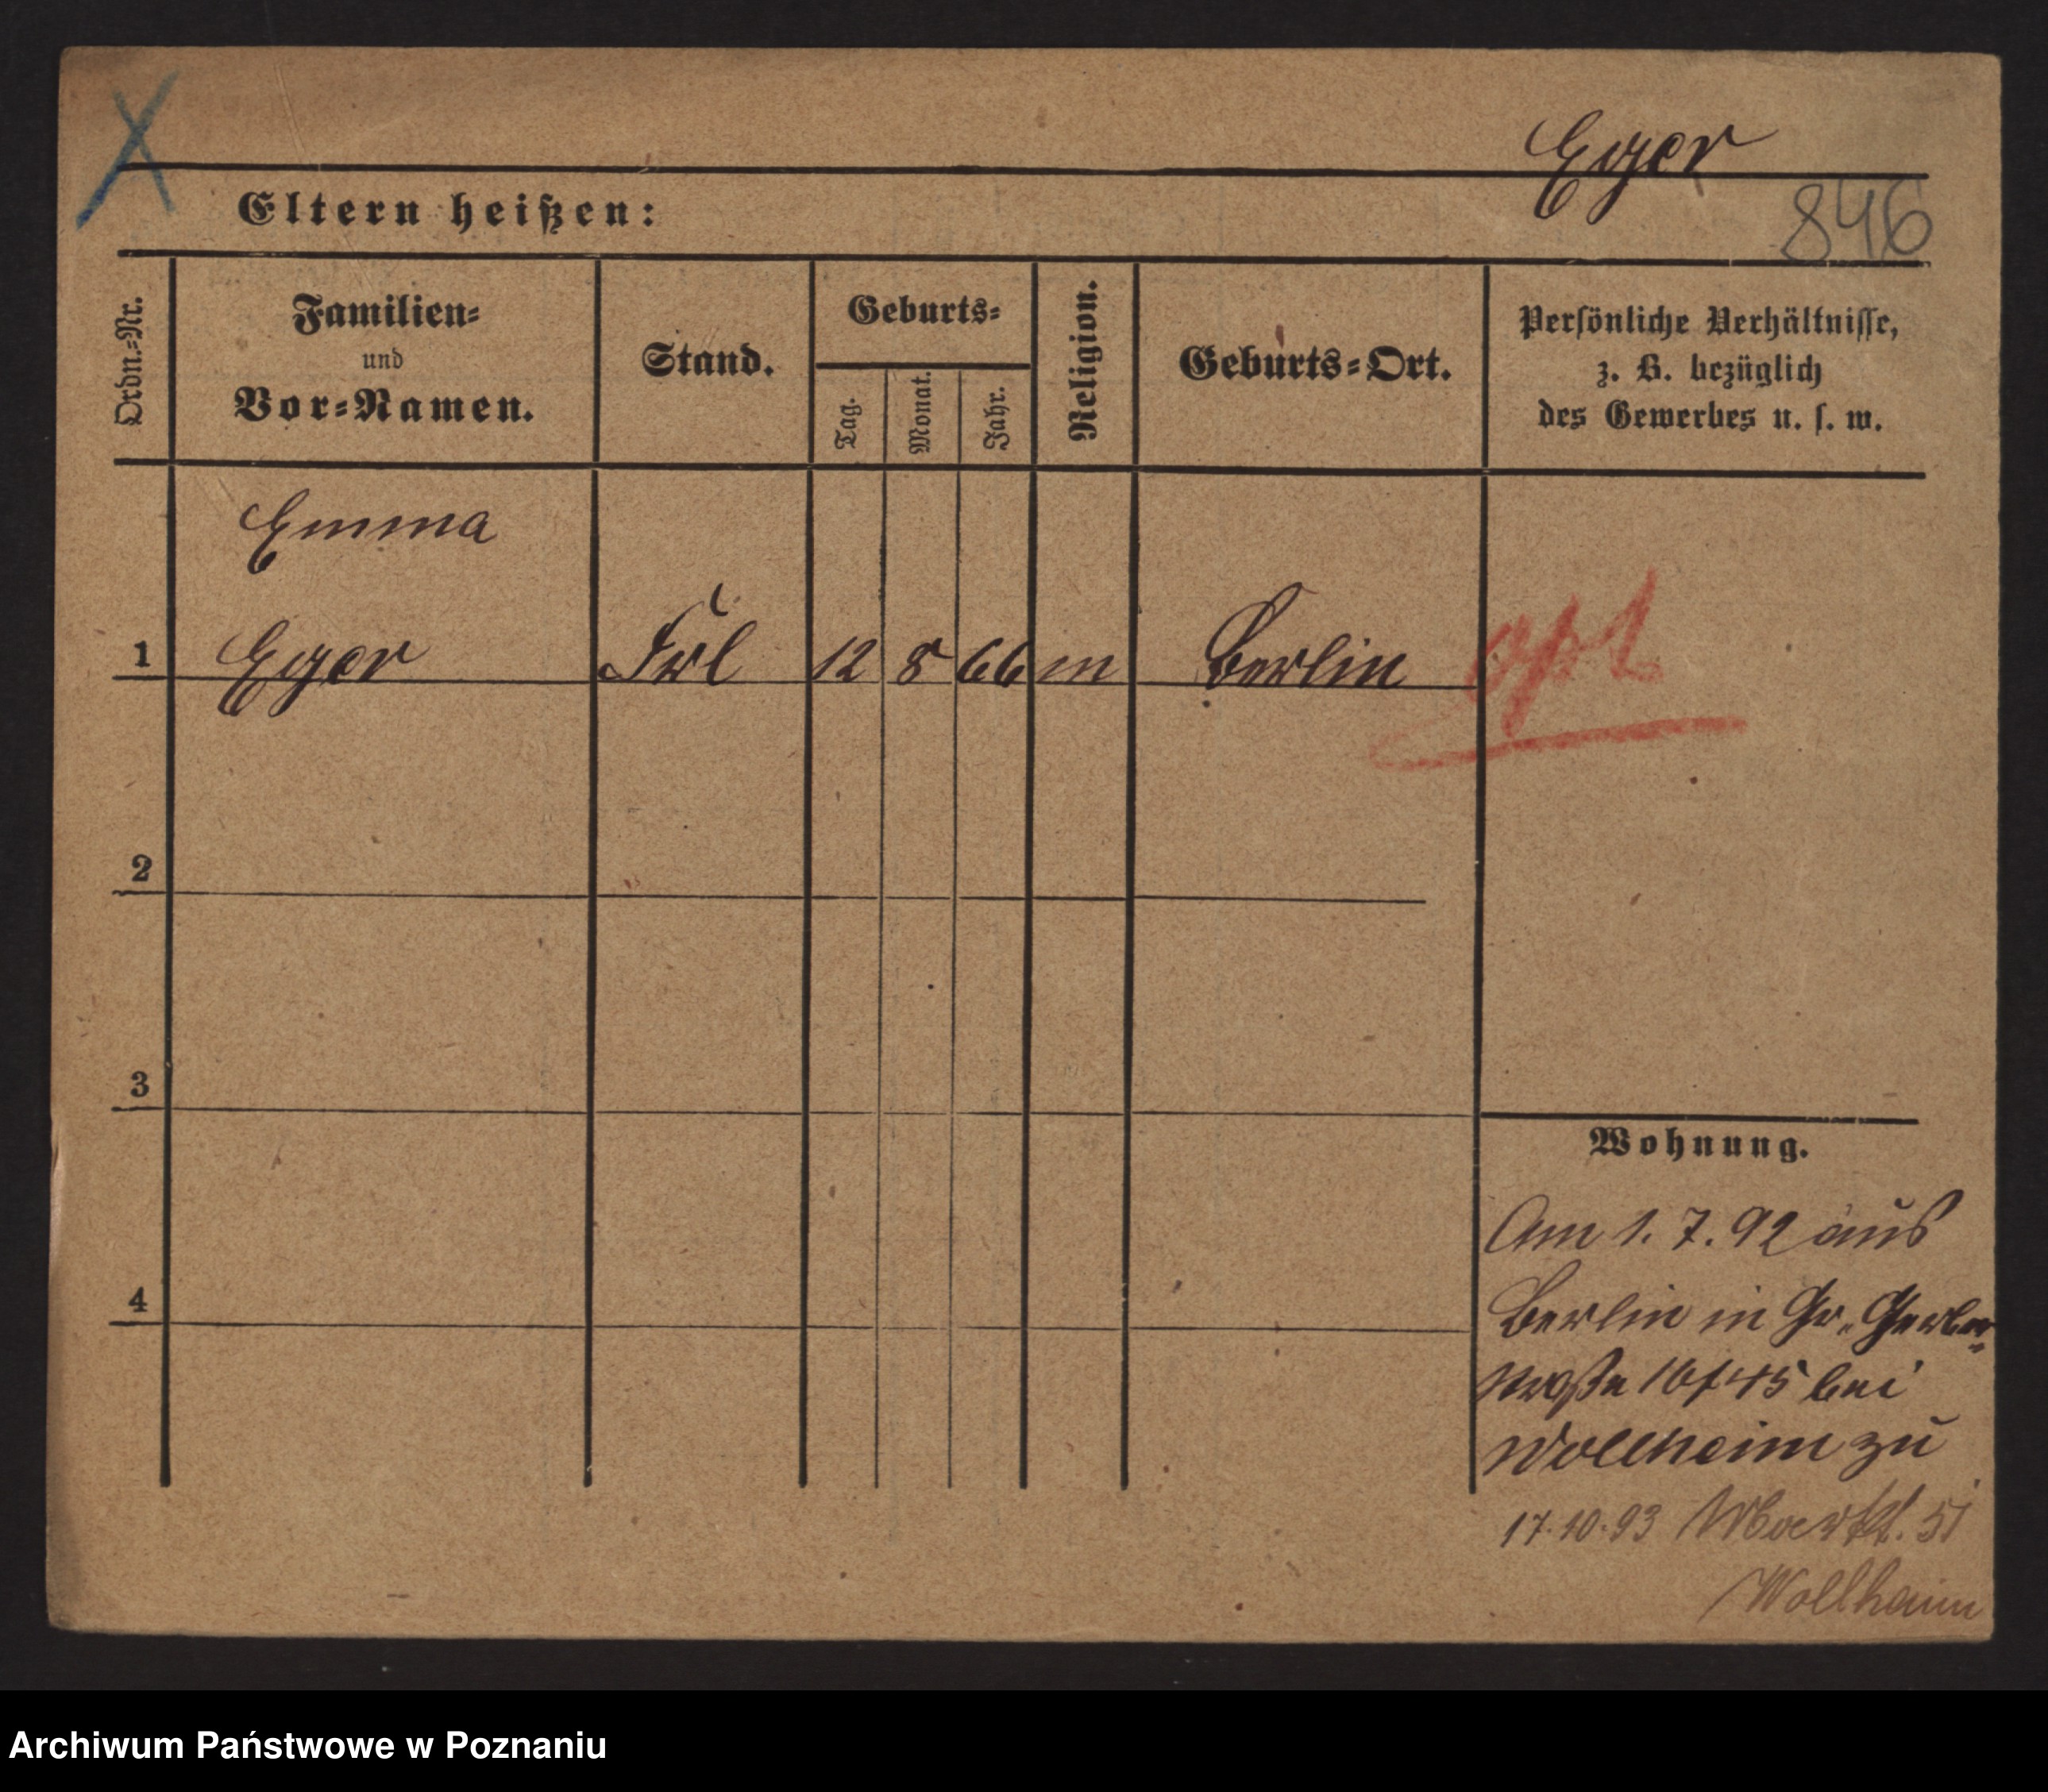 Eger
846
Eltern heißen:
Ordn.=Nr.
Familien=
und
Vor=Namen.
Stand.
Geburts=
Tag.
Monat.
Jahr.
Religion.
Geburts=Ort.
Persönliche Verhältnisse,
z. B. bezüglich
des Gewerbes u. s. w.
Emma
1 Eger Frl 12 8 66 m Berlin
2
3
4
Wohnung.
Am 1. 7. 92 aus
Berlin in Gr. Gerber-
straße bei
Wollheim zu
17.10.93 Markt. 51
Wollheim
Archiwum Państwowe w Poznaniu